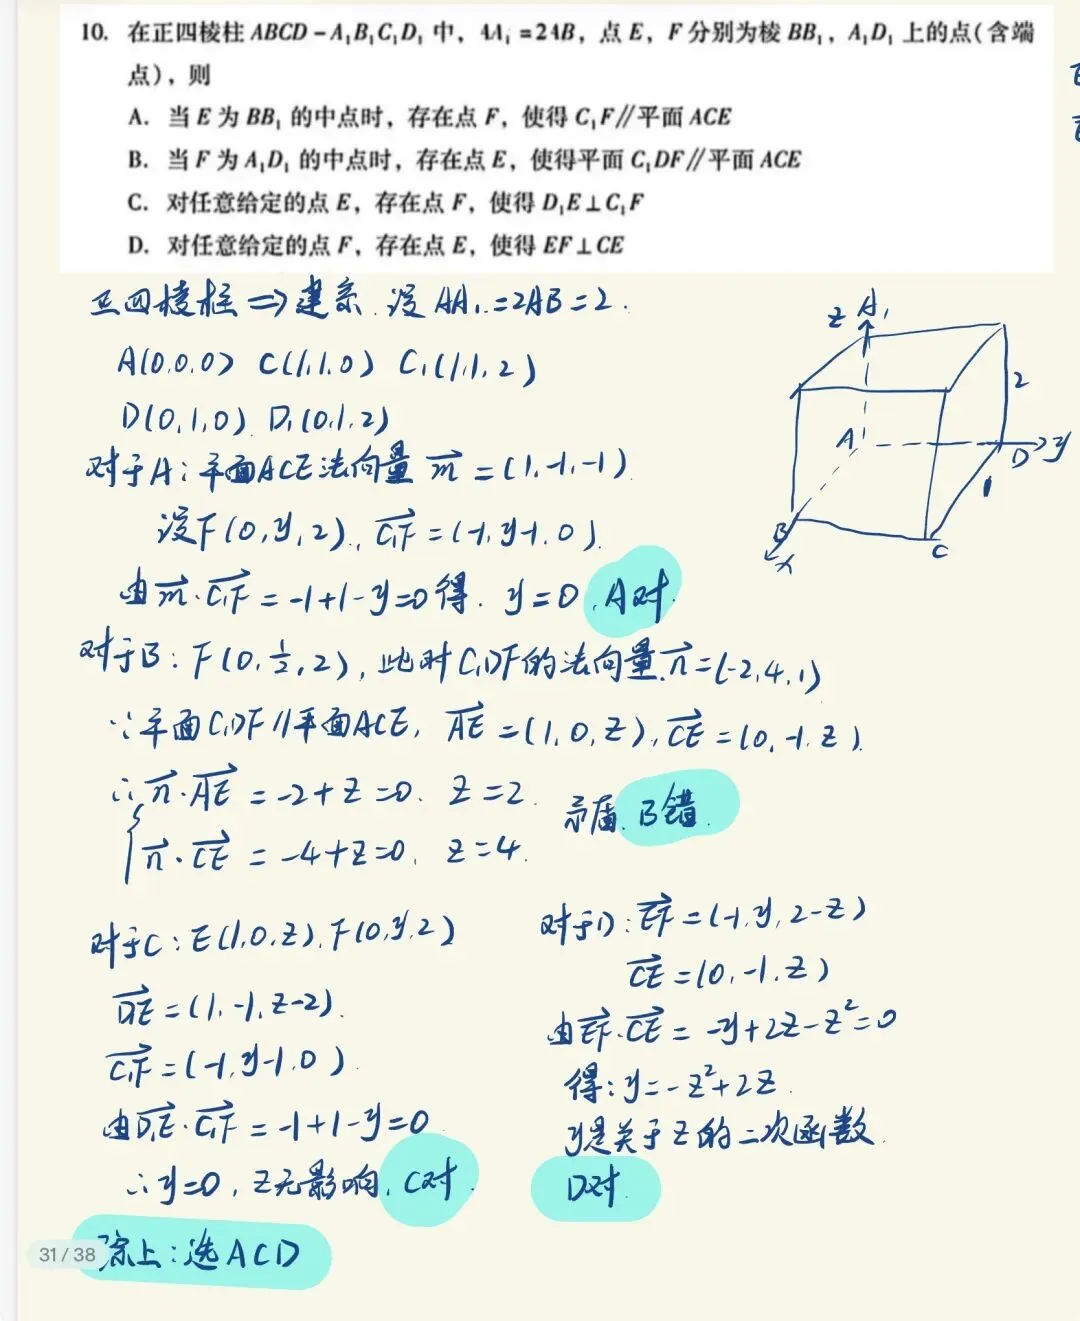 10. 在正四棱柱 ABCD-A₁B₁C₁D₁ 中，AA₁=2AB，点 E，F 分别为棱 BB₁，A₁D₁ 上的点(含端
点)，则
A. 当 E 为 BB₁ 的中点时，存在点 F，使得 C₁F∥平面 ACE
B. 当 F 为 A₁D₁ 的中点时，存在点 E，使得平面 C₁DF∥平面 ACE
C. 对任意给定的点 E，存在点 F，使得 D₁E⊥C₁F
D. 对任意给定的点 F，存在点 E，使得 EF⊥CE
正四棱柱 ⇒ 建系. 设 AA₁=2AB=2.
A(0,0,0) C(1,1,0) C₁(1,1,2)
D(0,1,0) D₁(0,1,2)
z A₁
2
A
D y
1
B
C
x
对于A: 平面ACE法向量 m⃗ = (1,-1,-1)
设F(0,y,2), C₁F⃗ = (-1,y-1,0).
由 m⃗·C₁F⃗ = -1+1-y=0 得. y=0, A对.
对于B: F(0,½,2), 此时C₁DF的法向量 n⃗=(-2,4,1)
∵平面C₁DF∥平面ACE, AE⃗=(1,0,z), CE⃗=(0,-1,z).
∴ n⃗·AE⃗ = -2+z=0. z=2.
n⃗·CE⃗ = -4+z=0. z=4.
矛盾. B错.
对于C: E(1,0,z), F(0,y,2)
D₁E⃗=(1,-1,z-2).
C₁F⃗=(-1,y-1,0).
由D₁E⃗·C₁F⃗ = -1+1-y=0
∴y=0, z无影响, C对.
对于D: EF⃗=(-1,y,2-z)
CE⃗=(0,-1,z)
由EF⃗·CE⃗ = -y+2z-z²=0
得: y=-z²+2z.
y是关于z的二次函数.
D对.
综上: 选ACD
31/38